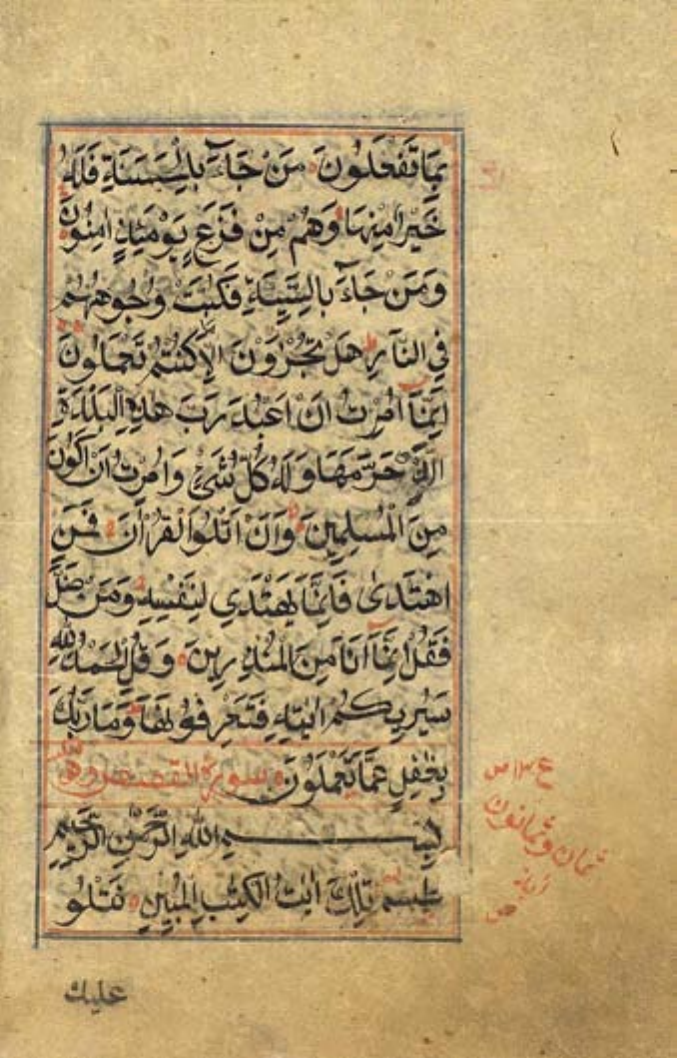 بِمَا تَفْعَلُونَ مَنْ جَآءَ بِالْحَسَنَةِ فَلَهُ
خَيْرٌ مِنْهَا وَهُمْ مِنْ فَزَعٍ يَوْمَئِذٍ اٰمِنُونَ
وَمَنْ جَآءَ بِالسَّيِّئَةِ فَكُبَّتْ وُجُوهُهُمْ
فِي النَّارِ هَلْ تُجْزَوْنَ اِلَّا مَا كُنْتُمْ تَعْمَلُونَ
اِنَّمَآ اُمِرْتُ اَنْ اَعْبُدَ رَبَّ هٰذِهِ الْبَلْدَةِ
الَّذِي حَرَّمَهَا وَلَهُ كُلُّ شَيْءٍ وَاُمِرْتُ اَنْ اَكُونَ
مِنَ الْمُسْلِمِينَ وَاَنْ اَتْلُوَا الْقُرْاٰنَ فَمَنِ
اهْتَدٰى فَاِنَّمَا يَهْتَدِي لِنَفْسِهِ وَمَنْ ضَلَّ
فَقُلْ اِنَّمَآ اَنَا مِنَ الْمُنْذِرِينَ وَقُلِ الْحَمْدُ لِلّٰهِ
سَيُرِيكُمْ اٰيَاتِهِ فَتَعْرِفُونَهَا وَمَا رَبُّكَ
بِغٰفِلٍ عَمَّا تَعْمَلُونَ سورة القصص
بِسْمِ اللّٰهِ الرَّحْمٰنِ الرَّحِيمِ
طٰسٓمٓ تِلْكَ اٰيٰتُ الْكِتٰبِ الْمُبِينِ نَتْلُو
ثمان وثمانون
عليك